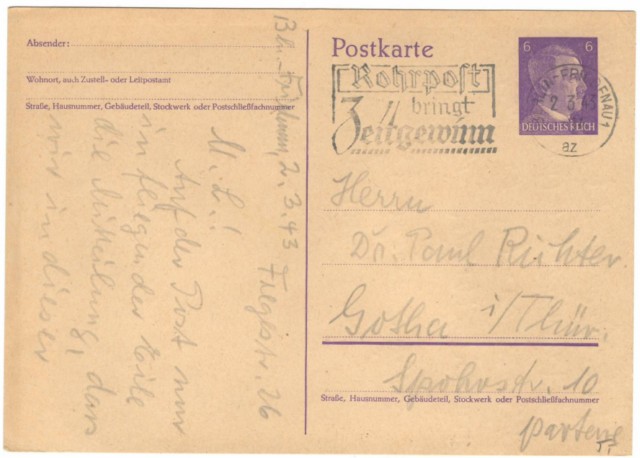 Absender:
Wohnort, auch Zustell- oder Leitpostamt
Straße, Hausnummer, Gebäudeteil, Stockwerk oder Postschließfachnummer
Postkarte
Rohrpost
bringt
Zeitgewinn
6 6
DEUTSCHES REICH
2.3.43
az
Bln. 2.3.43 Fregestr. 26
M. L.!
Auf der Post nur
in fliegender Eile
die Mitteilung, dass
wir in dieser
Herrn
Dr. Paul Richter
Gotha i/Thür.
Spohrstr. 10
Straße, Hausnummer, Gebäudeteil, Stockwerk oder Postschließfachnummer
parterre